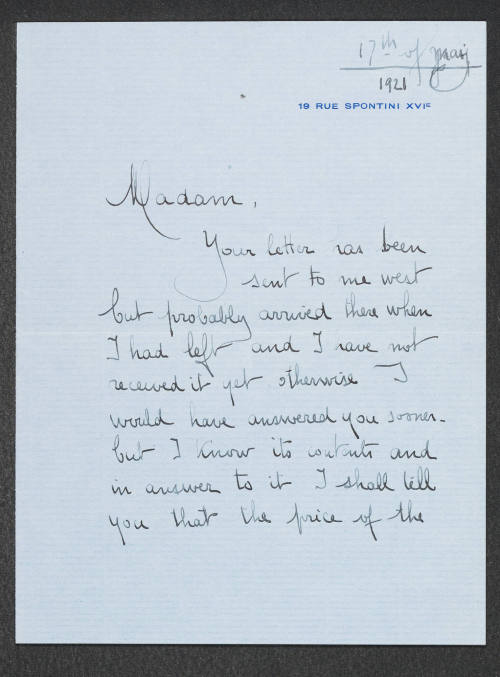 17th of May
1921
19 RUE SPONTINI XVIE
Madam,
Your letter has been
sent to me west
but probably arrived there when
I had left and I have not
received it yet otherwise I
would have answered you sooner.
but I know its contents and
in answer to it I shall tell
you that the price of the